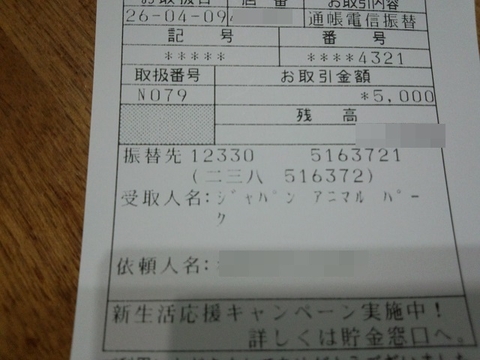 お取扱日 店番 お取引内容
26-04-09 通帳電信振替
記号 番号
***** ****4321
取扱番号 お取引金額
N079 *5,000
残高
振替先 12330 5163721
(二三八 516372)
受取人名:ジャパン アニマル パー
ク
依頼人名:
新生活応援キャンペーン実施中!
詳しくは貯金窓口へ。